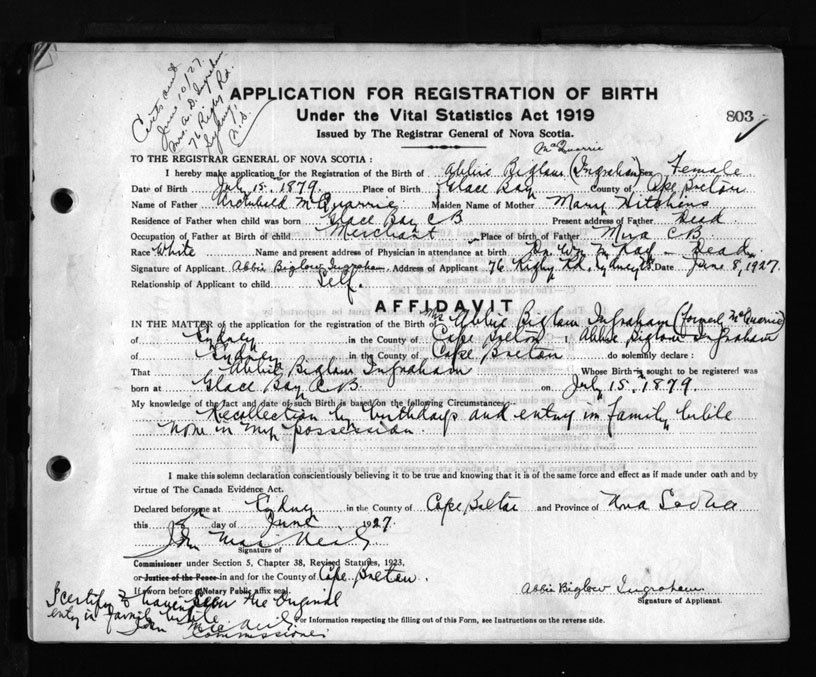 Certs out
June 10/27.
Mrs. A. D. Ingraham
76 Rigby Rd.
Sydney,
N.S.
APPLICATION FOR REGISTRATION OF BIRTH
Under the Vital Statistics Act 1919
803
Issued by The Registrar General of Nova Scotia.
McQuarrie
TO THE REGISTRAR GENERAL OF NOVA SCOTIA :
I hereby make application for the Registration of the Birth of Abbie Biglow (Ingraham) Sex Female
Date of Birth July 15, 1879. Place of Birth Glace Bay County of Cape Breton
Name of Father Archibald McQuarrie Maiden Name of Mother Mary Hitchens
Residence of Father when child was born Glace Bay CB Present address of Father Dead
Occupation of Father at Birth of child Merchant Place of birth of Father Mira CB
Race White Name and present address of Physician in attendance at birth Dr. Wm. McKay - Dead.
Signature of Applicant Abbie Biglow Ingraham. Address of Applicant 76 Rigby Rd. Sydney CB Date June 8, 1927.
Relationship of Applicant to child Self.
AFFIDAVIT
IN THE MATTER of the application for the registration of the Birth of Mrs Abbie Biglow Ingraham (formerly McQuarrie)
of Sydney in the County of Cape Breton I Abbie Biglow Ingraham
of Sydney in the County of Cape Breton do solemnly declare :
That Abbie Biglow Ingraham Whose Birth is sought to be registered was
born at Glace Bay C.B. on July 15, 1879.
My knowledge of the fact and date of such Birth is based on the following Circumstances:-
Recollection by birthdays and entry in family bible
now in my possession.
I make this solemn declaration conscientiously believing it to be true and knowing that it is of the same force and effect as if made under oath and by
virtue of The Canada Evidence Act.
Declared before me at Sydney in the County of Cape Breton and Province of Nova Scotia
this 8th day of June 1927.
John MacNeil
Signature of
Commissioner under Section 5, Chapter 38, Revised Statutes, 1923,
or Justice of the Peace in and for the County of Cape Breton.
If sworn before a Notary Public affix seal.
Abbie Biglow Ingraham
Signature of Applicant.
I certify to have seen the original
entry in family bible
John MacNeil
Commissioner
For Information respecting the filling out of this Form, see Instructions on the reverse side.